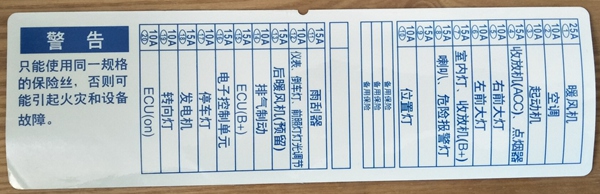 警告
只能使用同一规格
的保险丝，否则可
能引起火灾和设备
故障。
10A ECU(on)
10A 转向灯
15A 发电机
10A 停车灯
15A 电子控制单元
10A ECU(B+)
10A 排气制动
15A 后暖风机(预留)
10A 仪表、倒车灯、前照灯灯光调节
15A 雨刮器
备用保险
备用保险
备用保险
10A 位置灯
15A 喇叭、危险报警灯
15A 室内灯、收放机(B+)
10A 左前大灯
10A 右前大灯
15A 收放机(ACC)、点烟器
10A 起动机
10A 空调
25A 暖风机